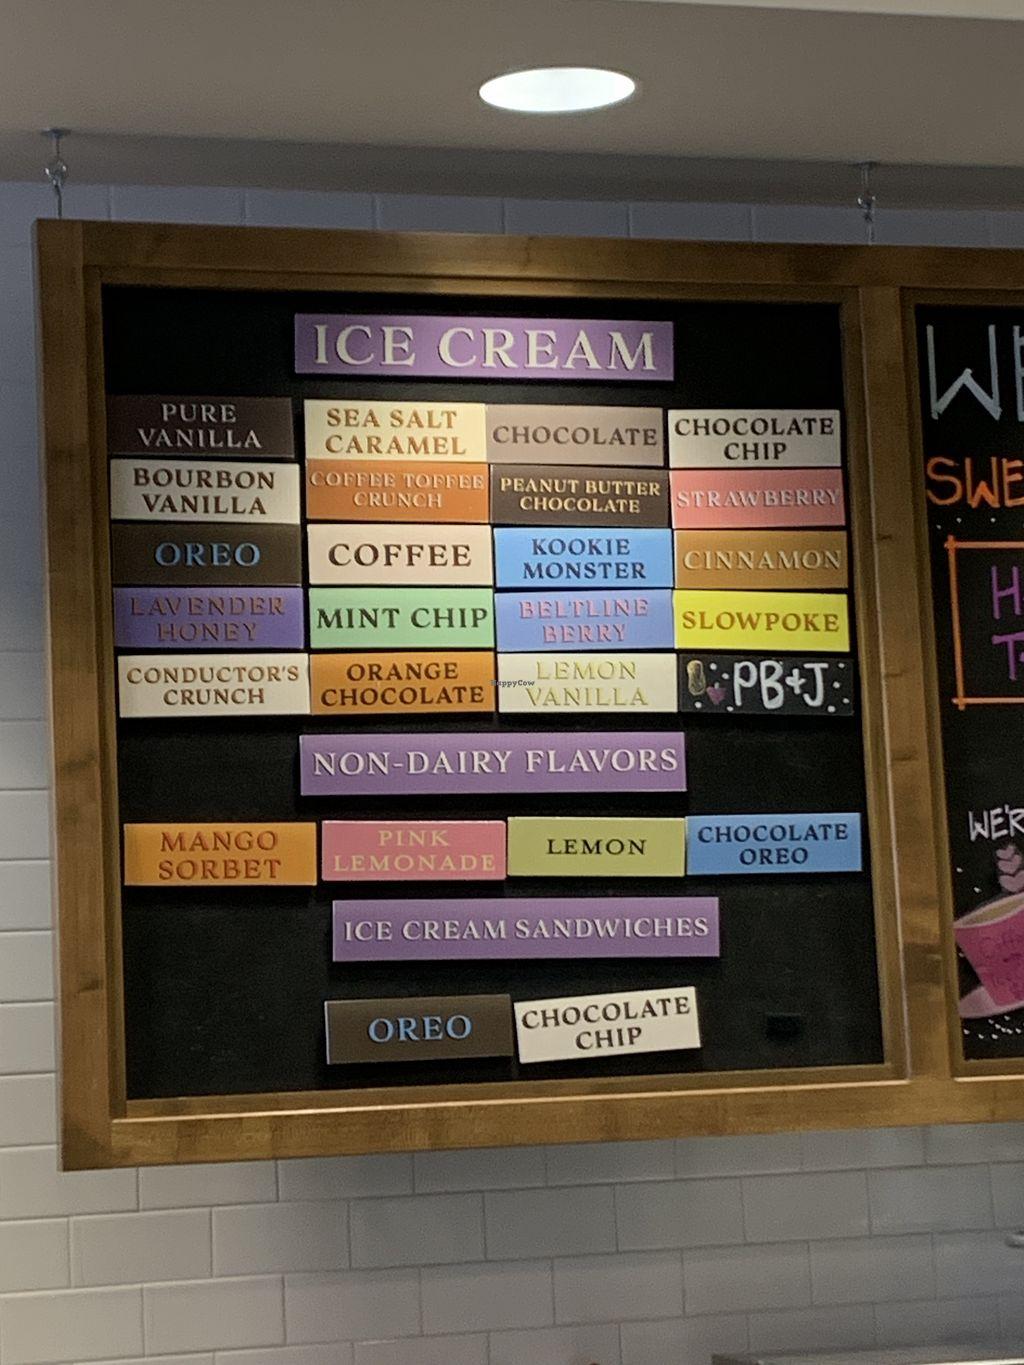 ICE CREAM
PURE
VANILLA
SEA SALT
CARAMEL
CHOCOLATE
CHOCOLATE
CHIP
BOURBON
VANILLA
COFFEE TOFFEE
CRUNCH
PEANUT BUTTER
CHOCOLATE
STRAWBERRY
OREO
COFFEE
KOOKIE
MONSTER
CINNAMON
LAVENDER
HONEY
MINT CHIP
BELTLINE
BERRY
SLOWPOKE
CONDUCTOR'S
CRUNCH
ORANGE
CHOCOLATE
LEMON
VANILLA
PB+J
HappyCow
NON-DAIRY FLAVORS
MANGO
SORBET
PINK
LEMONADE
LEMON
CHOCOLATE
OREO
ICE CREAM SANDWICHES
OREO
CHOCOLATE
CHIP
WE'R